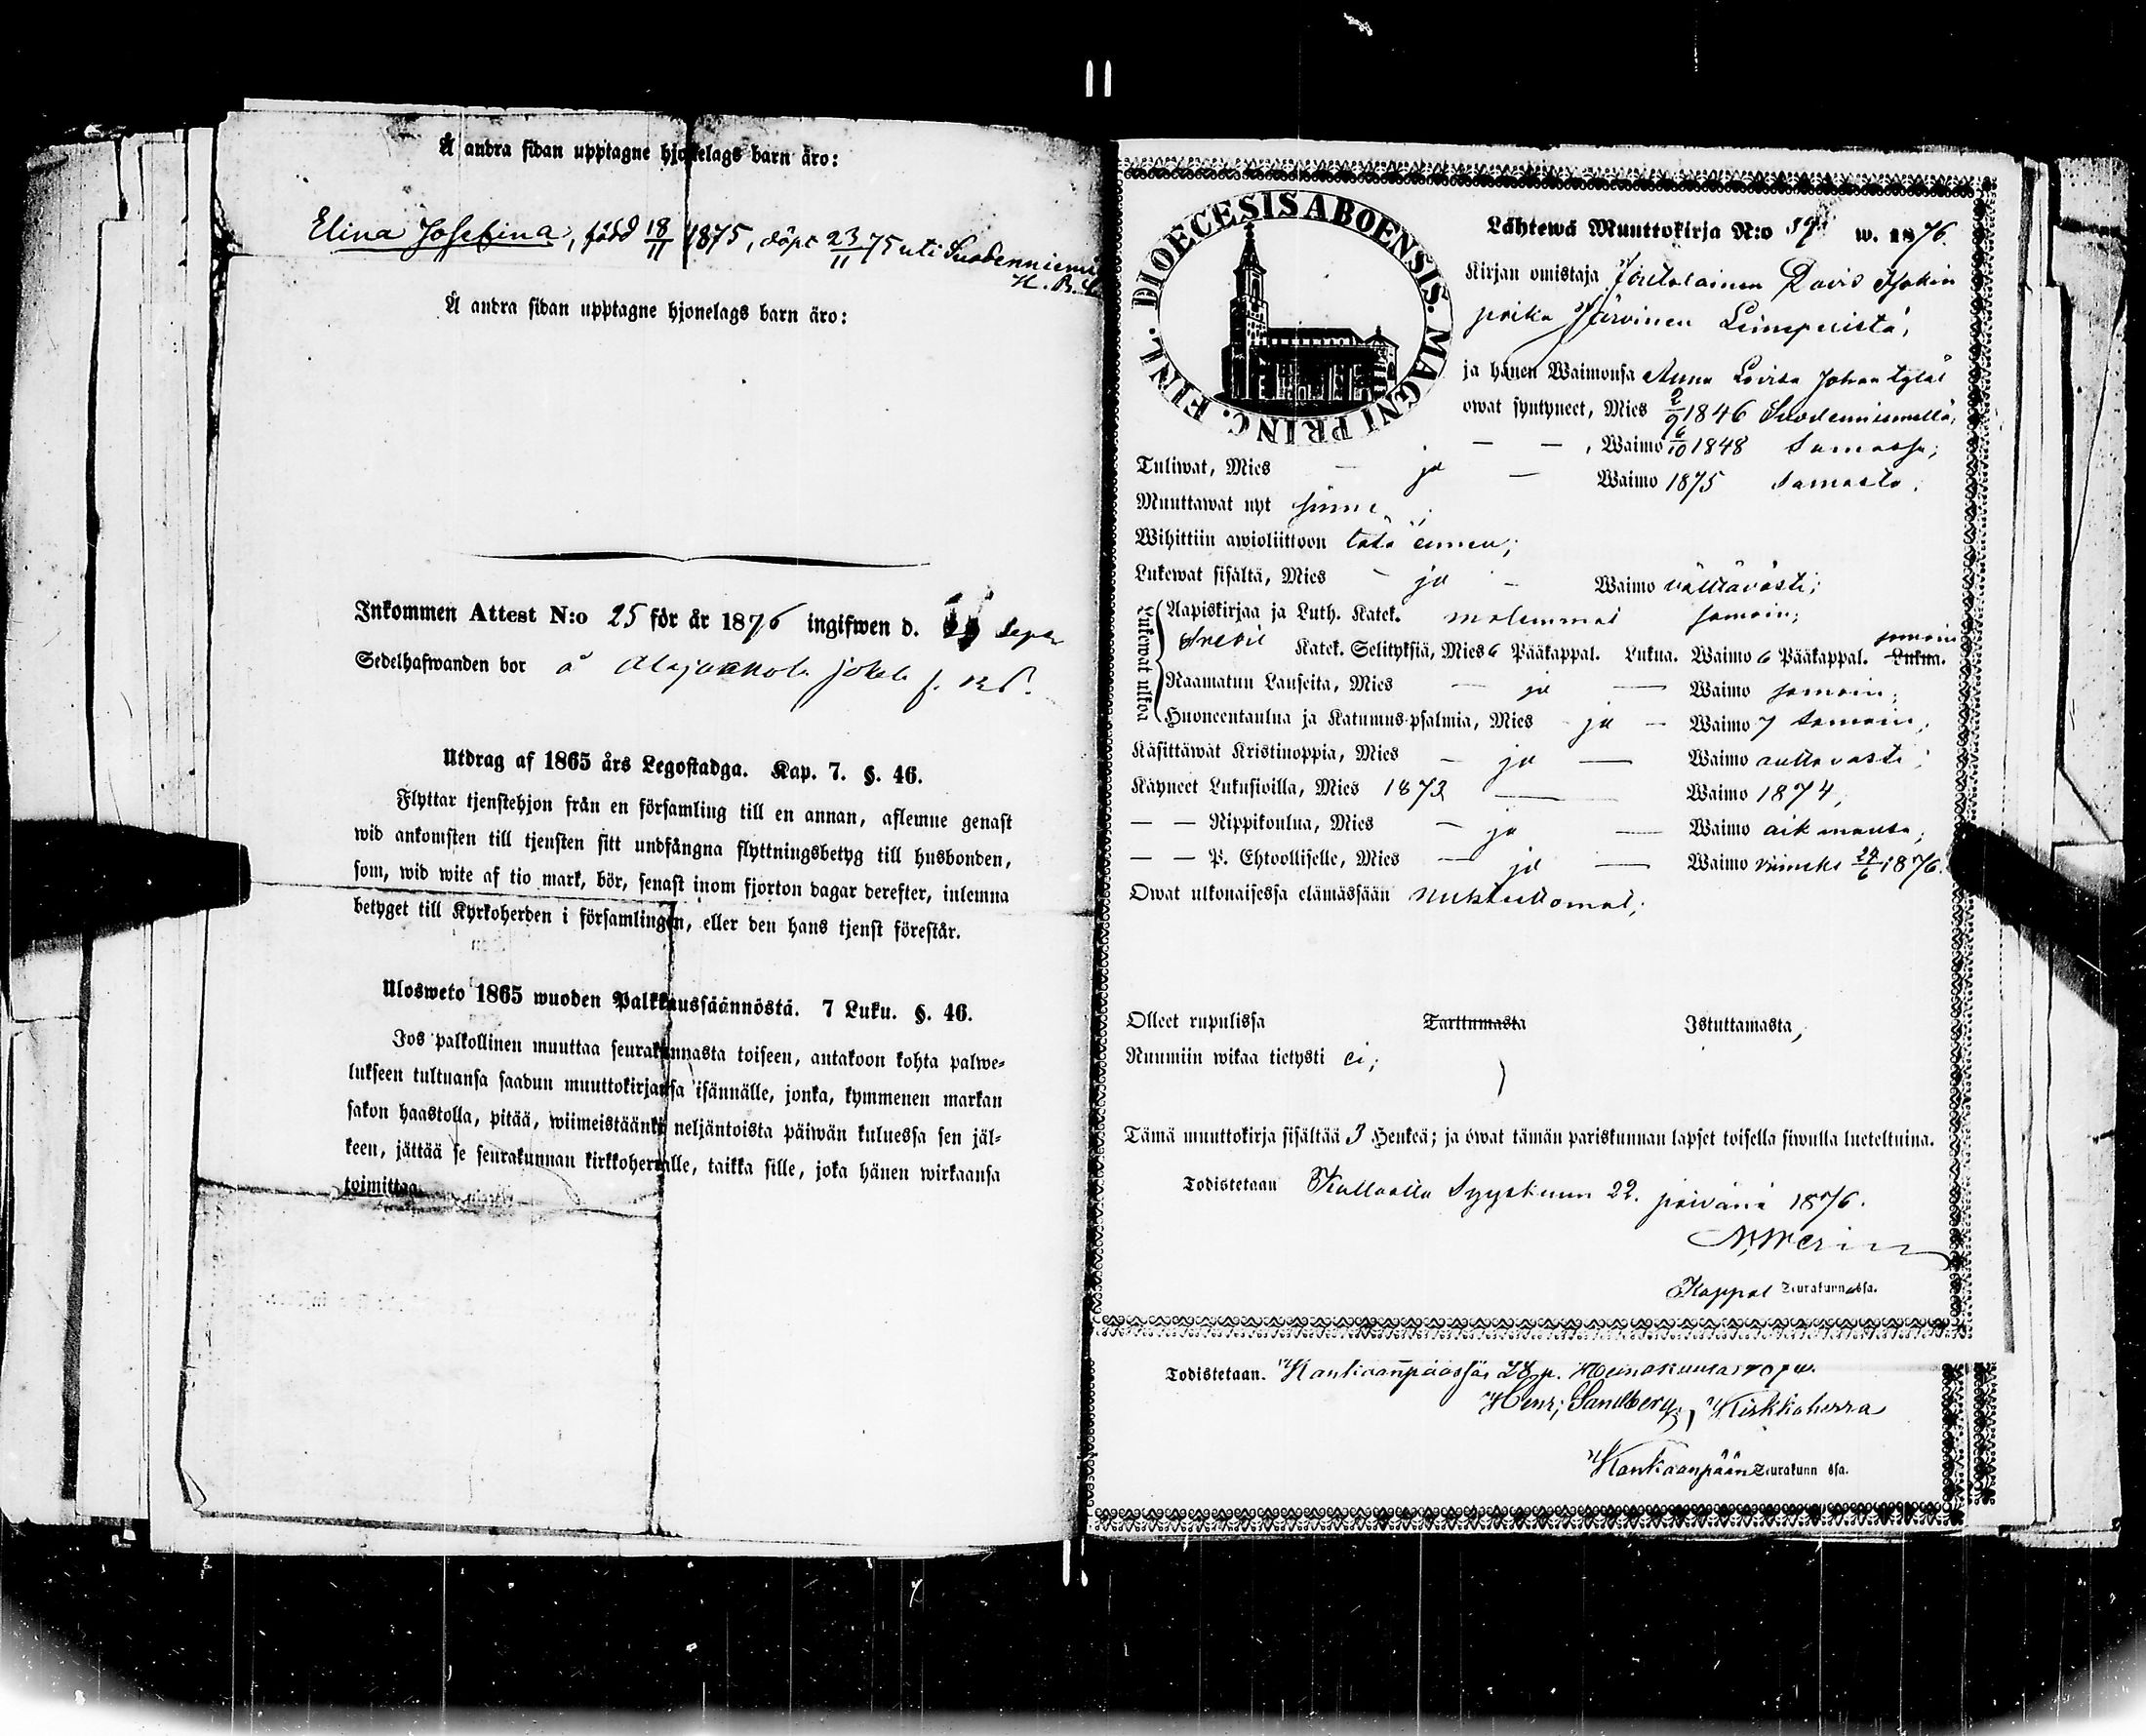 Å andra sidan upptagne hjonelags barn äro:
Elina Josefina, född 18/11 1875, döpt 23/11 75 uti Suodenniemi
K. B. S.
Å andra sidan upptagne hjonelags barn äro:
Inkommen Attest N:o 25 för år 1876 ingifwen d. Sept
Sedelhafwanden bor å
Utdrag af 1865 års Legostadga. Kap. 7. §. 46.
Flyttar tjenstehjon från en församling till en annan, aflemne genast
wid ankomsten till tjensten sitt undfångna flyttningsbetyg till husbonden,
som, wid wite af tio mark, bör, senast inom fjorton dagar derefter, inlemna
betyget till Kyrkoherden i församlingen, eller den hans tjenst förestår.
Ulosweto 1865 wuoden Palkkaussäännöstä. 7 Luku. §. 46.
Jos palkollinen muuttaa seurakunnasta toiseen, antakoon kohta palwe-
lukseen tultuansa saadun muuttokirjansa isännälle, jonka, kymmenen markan
sakon haastolla, pitää, wiimeistäänki neljäntoista päiwän kuluessa sen jäl-
keen, jättää se seurakunnan kirkkoherralle, taikka sille, joka hänen wirkaansa
toimittaa.
DIOECESIS ABOENSIS. MAGNI PRINC. FINL.
Lähtewä Muuttokirja N:o w. 1876.
Kirjan omistaja David
poika Järvinen
ja hänen Waimonsa Anna Lovisa Johan tytär
owat syntyneet, Mies 2/9 1846 Suodenniemellä,
— — , Waimo 6/10 1848 Samassa;
Tuliwat, Mies — ja — Waimo 1875 samasta.
Muuttawat nyt sinne
Wihittiin awioliittoon tätä ennen;
Lukewat sisältä, Mies — ja — Waimo välttävästi;
Lukewat ulkoa
Aapiskirjaa ja Luth. Katek. molemmat samoin;
Svebil. Katek. Selityksiä, Mies 6 Pääkappal. Lukua. Waimo 6 Pääkappal. Lukua. samoin
Raamatun Lauseita, Mies — ja — Waimo samoin;
Huoneentaulua ja Katumus-psalmia, Mies — ja — Waimo 7 samoin;
Käsittäwät Kristinoppia, Mies — ja — Waimo auttavasti;
Käyneet Lukusioilla, Mies 1873 — Waimo 1874,
— — Rippikoulua, Mies — ja — Waimo aikanansa;
— — P. Ehtoollisella, Mies — ja — Waimo viimeksi 24/6 1876.
Owat ulkonaisessa elämässään nuhteettomat;
Olleet rupulissa Tarttumasta Istuttamasta,
Ruumiin wikaa tietysti ei;
Tämä muuttokirja sisältää 3 Henkeä; ja owat tämän pariskunnan lapset toisella siwulla lueteltuina.
Todistetaan Kullaalla Syyskuun 22. päivänä 1876.
Kappal Seurakunnassa.
Todistetaan. Kankaanpäässä 28 p. Heinäkuuta
Henr. Sandberg, Kirkkoherra
Kankaanpään Seurakunnassa.